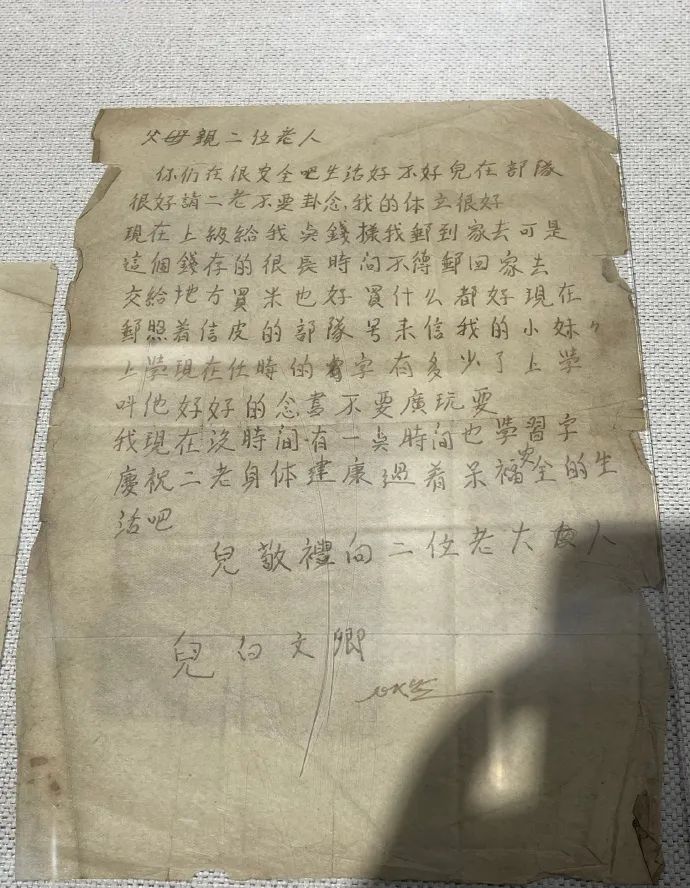 父母親二位老人
你们在很安全吧生活好不好兒在部隊
很好請二老不要卦念,我的体立很好
現在上級給我点錢揉我郵到家去可是
這個錢存的很長時间不得郵回家去
交給地方買米也好買什么都好現在
郵照着信皮的部隊号来信我的小妹〃
上學現在仕時的字有多少了上學
叫他好好的念書不要廣玩耍
我現在没時间有一点時间也學習字
慶祝二老身体建康過着呆福安全的生
活吧
兒敬禮向二位老大人
兒白文卿